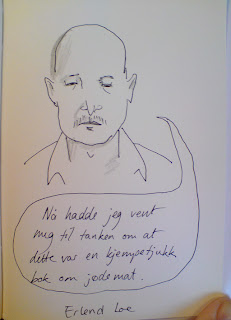 Nå hadde jeg vent
meg til tanken om at
dette var en kjempetjukk
bok om jødemat.
Erlend Loe